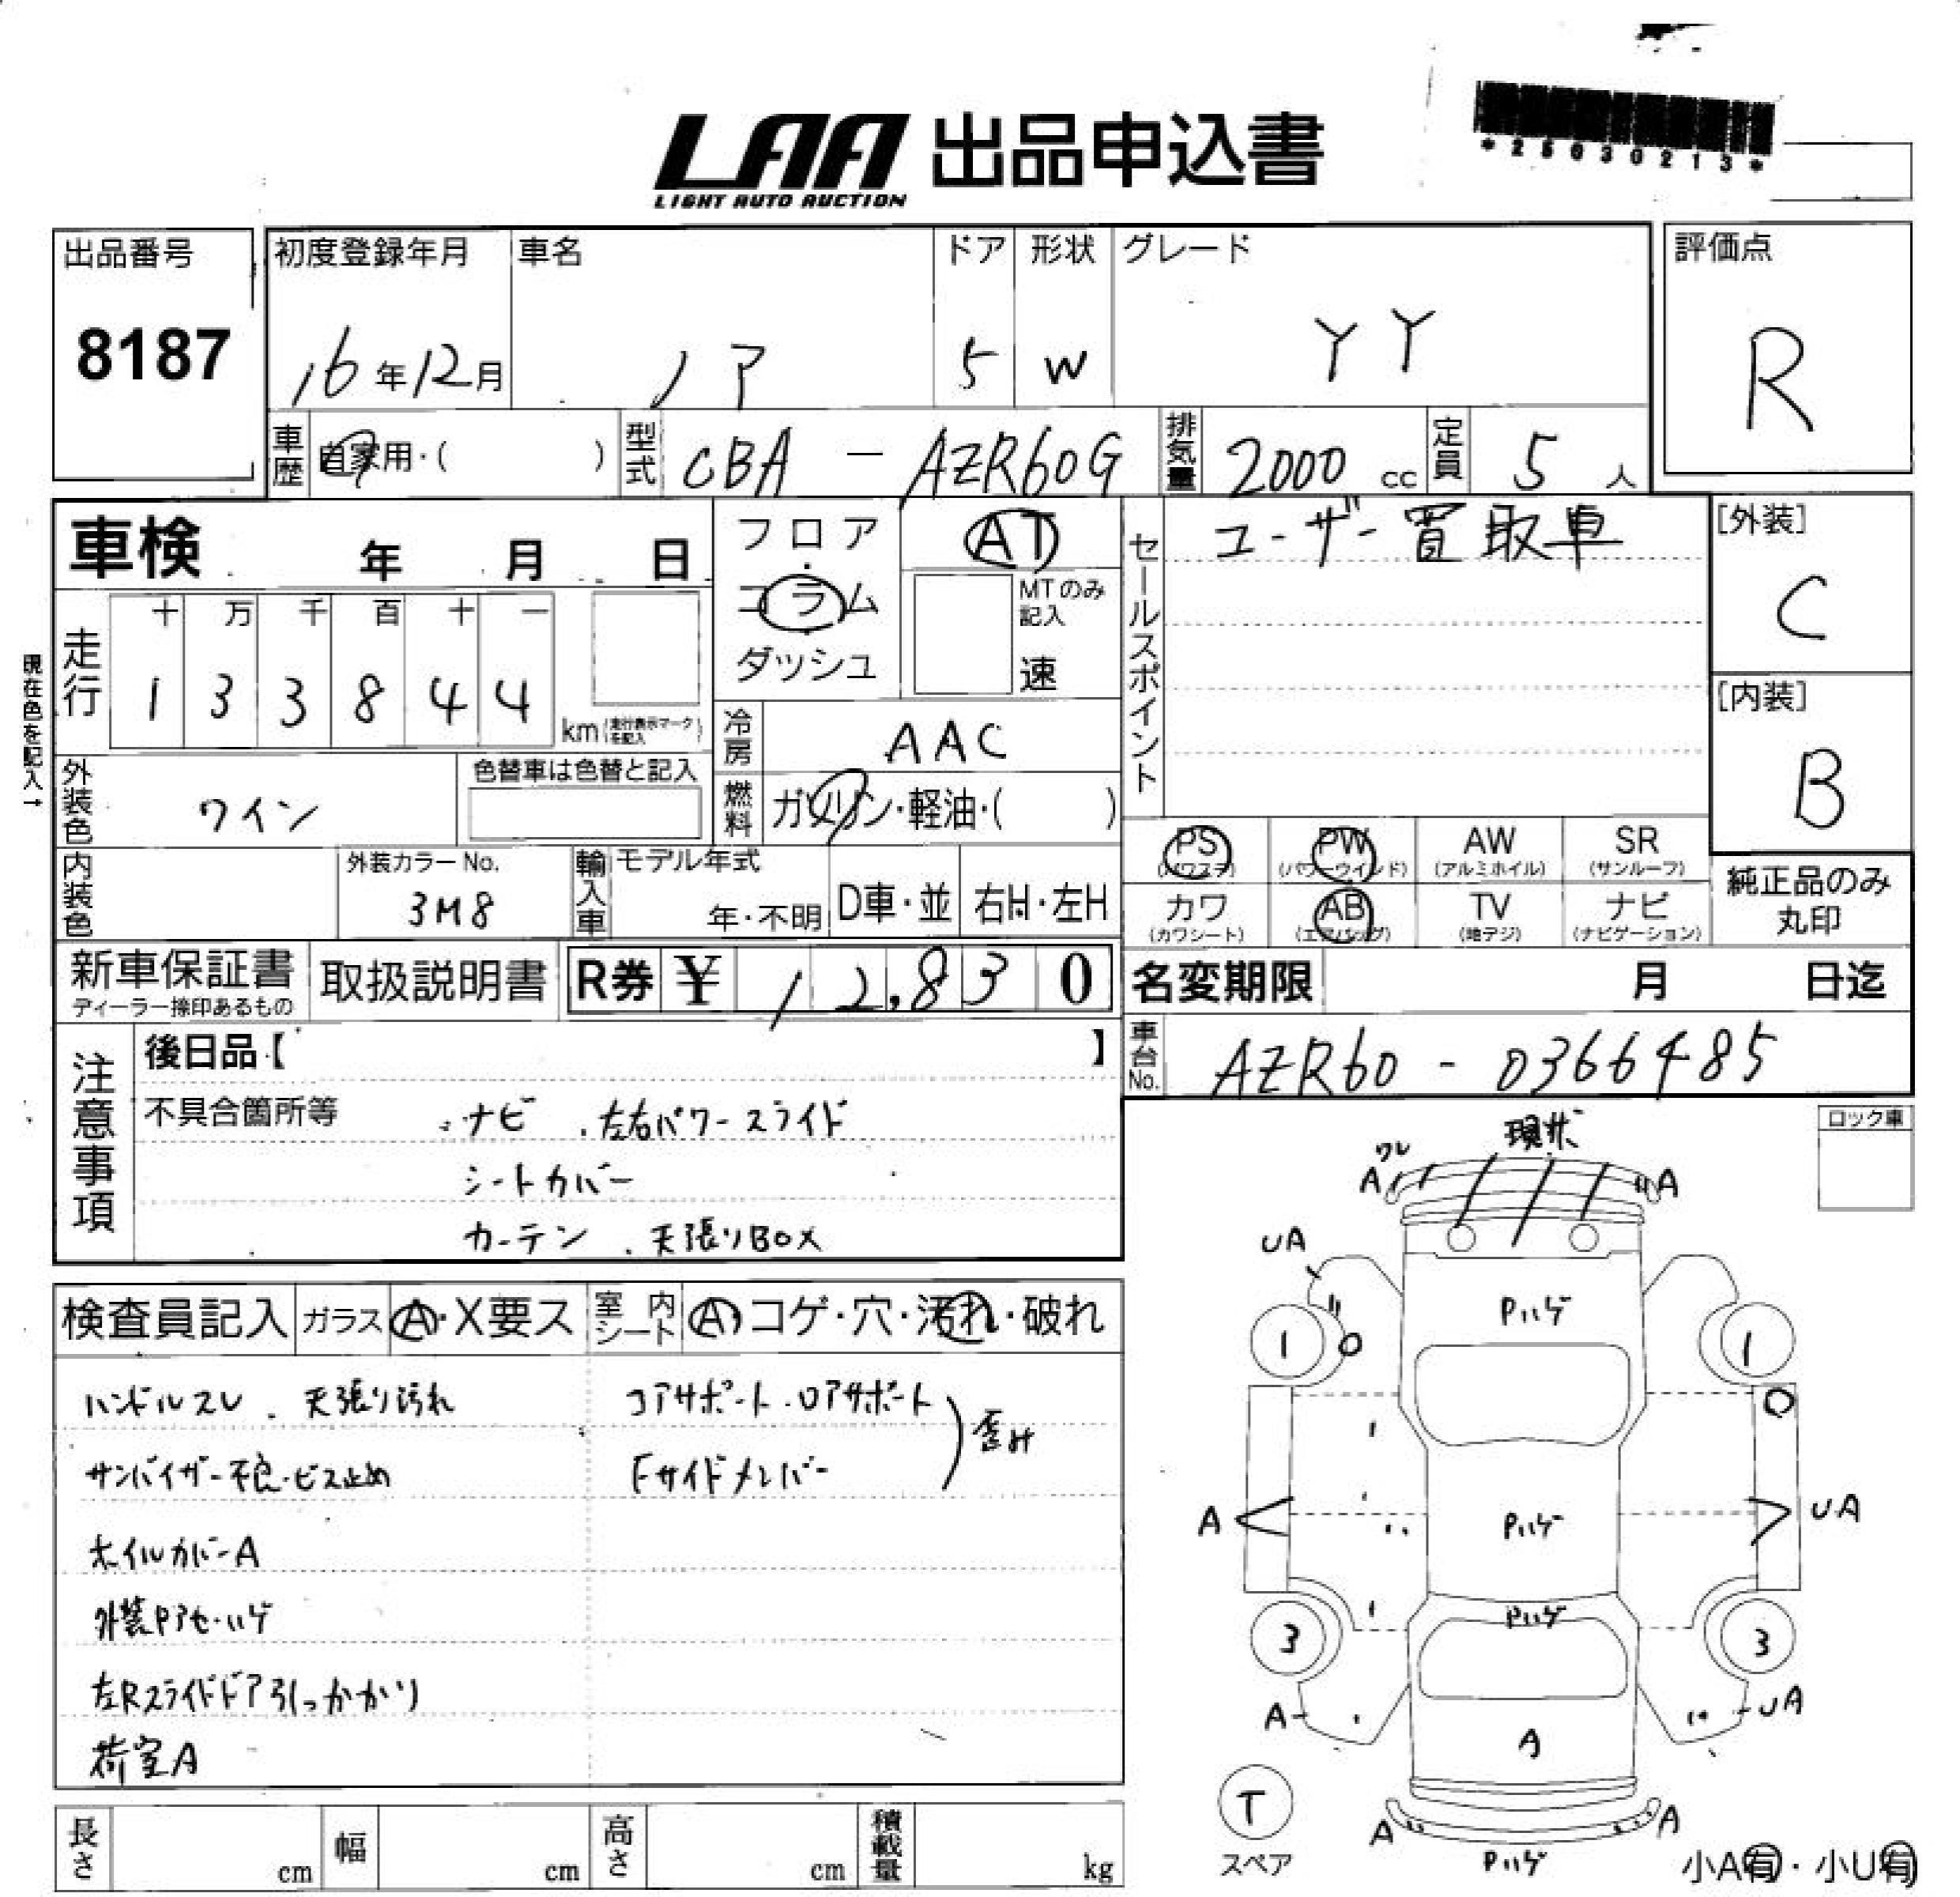 LAA 出品申込書
LIGHT AUTO AUCTION
*25030213*
出品番号
8187
初度登録年月
16年12月
車名
ノア
ドア
5
形状
W
グレード
YY
評価点
R
車歴
自家用・( )
型式
CBA - AZR60G
排気量
2000 cc
定員
5 人
車検 年 月 日
フロア
コラム
ダッシュ
AT
MTのみ
記入
速
セールスポイント
ユーザー買取車
[外装]
C
[内装]
B
現在色を記入→
走行
十 万 千 百 十 一
1 3 3 8 4 4
km (走行表示マークを記入)
冷房
AAC
燃料
ガソリン・軽油・( )
外装色
ワイン
色替車は色替と記入
内装色
外装カラーNo.
3M8
輸入車
モデル年式
年・不明
D車・並
右H・左H
PS
(パワステ)
PW
(パワーウインド)
AW
(アルミホイル)
SR
(サンルーフ)
カワ
(カワシート)
AB
(エアバッグ)
TV
(地デジ)
ナビ
(ナビゲーション)
純正品のみ
丸印
新車保証書
ディーラー捺印あるもの
取扱説明書
R券 ¥ 12,830
名変期限 月 日迄
車台No.
AZR60 - 0366485
注意事項
後日品【 】
不具合箇所等
・ナビ ・左右パワースライド
シートカバー
カーテン ・天張りBOX
ロック車
検査員記入
ガラス
A・X要ス
室内シート
A・コゲ・穴・汚れ・破れ
ハンドルスレ ・天張り汚れ
サンバイザー不良・ビス止め
ホイルカバーA
外装Pアセ・ハゲ
左Rスライドドア引っかかり
荷室A
コアサポート・ロアサポート
Fサイドメンバー
歪み
現状
ワレ
A
A
UA
Pハゲ
1
1
A
Pハゲ
UA
Pハゲ
3
3
A
UA
A
T
スペア
A
A
Pハゲ
小A有・小U有
長さ cm
幅 cm
高さ cm
積載量 kg